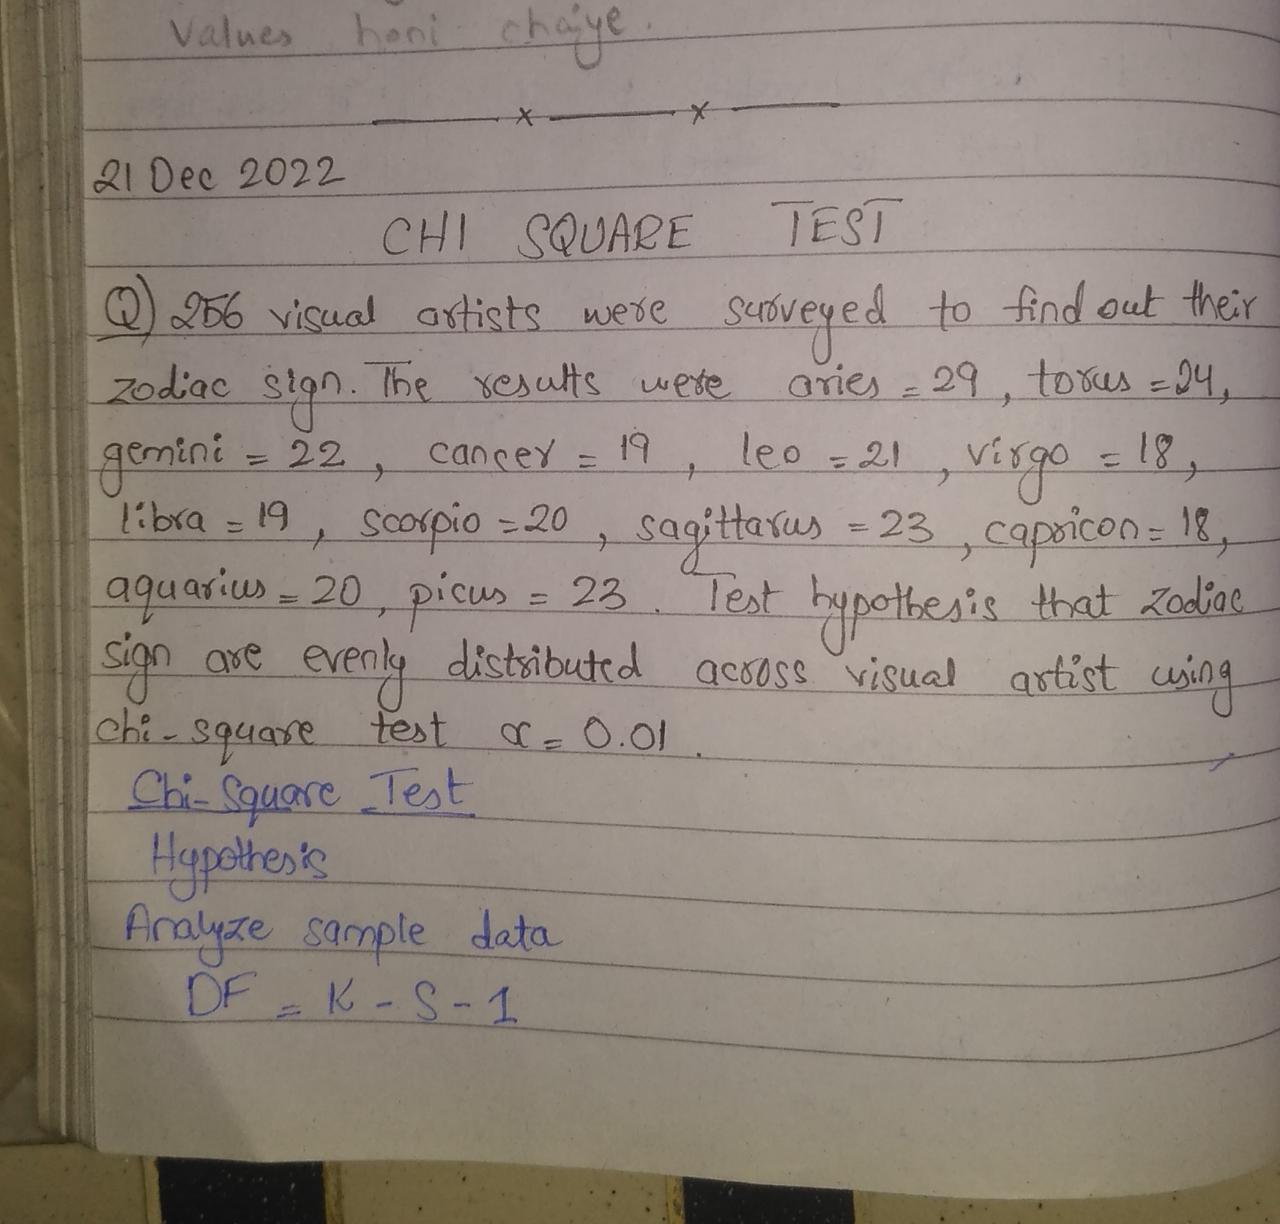 Values honi chaiye.
x x
21 Dec 2022
CHI SQUARE TEST
Q) 256 visual artists were surveyed to find out their
zodiac sign. The results were aries = 29, torus = 24,
gemini = 22, cancer = 19, leo = 21, virgo = 18,
libra = 19, scorpio = 20, sagittarus = 23, capricon = 18,
aquarius = 20, picus = 23. Test hypothesis that zodiac
sign are evenly distributed across visual artist using
chi-square test α = 0.01.
Chi-Square Test
Hypothesis
Analyze sample data
DF = K - S - 1